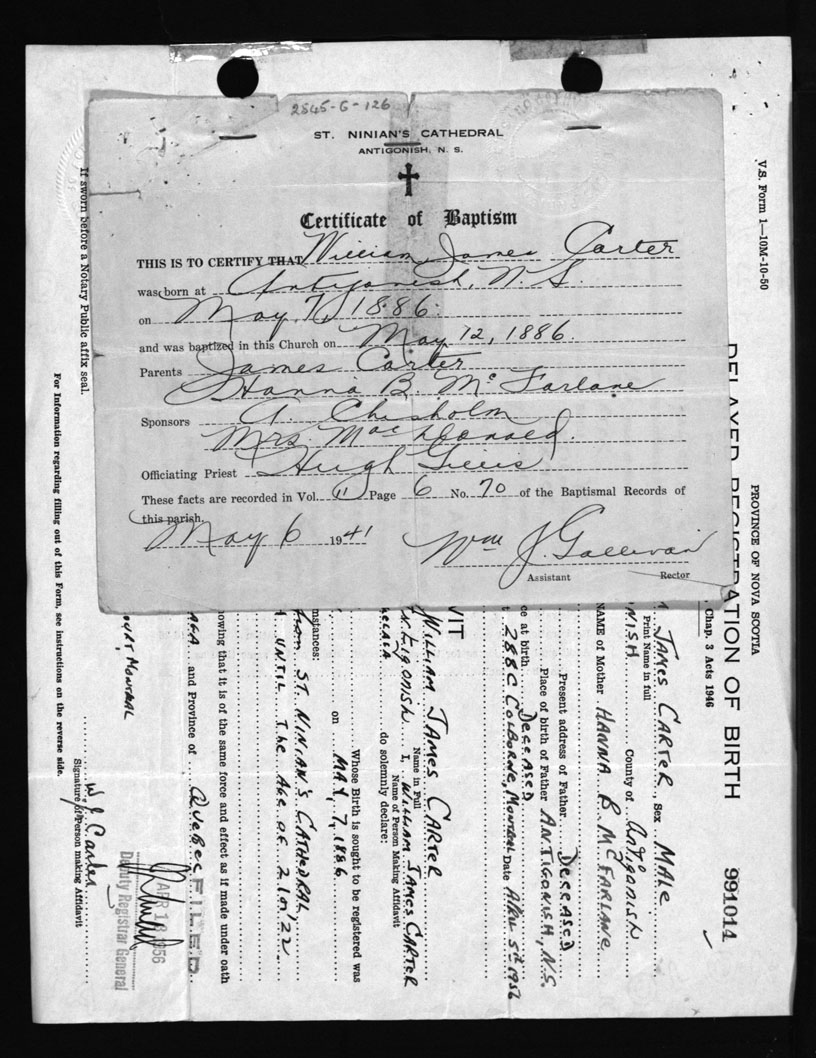 2845-G-126
ST. NINIAN'S CATHEDRAL
ANTIGONISH, N. S.
Certificate of Baptism
THIS IS TO CERTIFY THAT William James Carter
was born at Antigonish, N. S.
on May 7, 1886.
and was baptized in this Church on May 12, 1886.
Parents James Carter
Hanna B. McFarlane
Sponsors A. Chisholm
Mrs. MacDonald.
Officiating Priest Hugh Gillis
These facts are recorded in Vol. II Page 6 No. 70 of the Baptismal Records of
this parish.
May 6 1941
Wm J. Gallivan
Assistant Rector
V.S. Form 1—10M-10-50
PROVINCE OF NOVA SCOTIA
DELAYED REGISTRATION OF BIRTH 991014
Chap. 3 Acts 1946
JAMES CARTER Sex MALE
Print Name in full
NISH County of ANTIGONISH
NAME of Mother HANNA B McFARLANE
Present address of Father DECEASED
Place of birth of Father ANTIGONISH, N.S.
ce at birth DECEASED
288C COLBORNE, MONTREAL Date APRIL 5th 1956
VIT
WILLIAM JAMES CARTER
Name in Full
NTIGONISH I, WILLIAM JAMES CARTER
Name of Person Making Affidavit
do solemnly declare:
Whose Birth is sought to be registered was
on MAY, 7, 1886
mstances:
from ST. NINIAN'S CATHEDRAL
UNTIL The AGE OF 21 or '22
nowing that it is of the same force and effect as if made under oath
and Province of QUEBEC FILED
APR 18 1956
Deputy Registrar General
OURT, MONTREAL
W. J. Carter
Signature of Person making Affidavit
If sworn before a Notary Public affix seal.
For Information regarding filling out of this Form, see instructions on the reverse side.